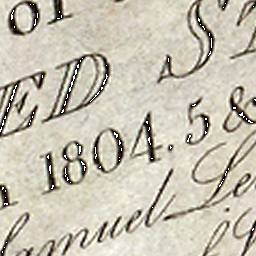 of
ED ST
1804.5 &
Samuel Le